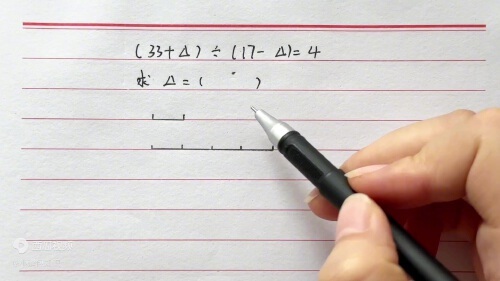 (33+Δ)÷(17-Δ)=4
求 Δ=( )